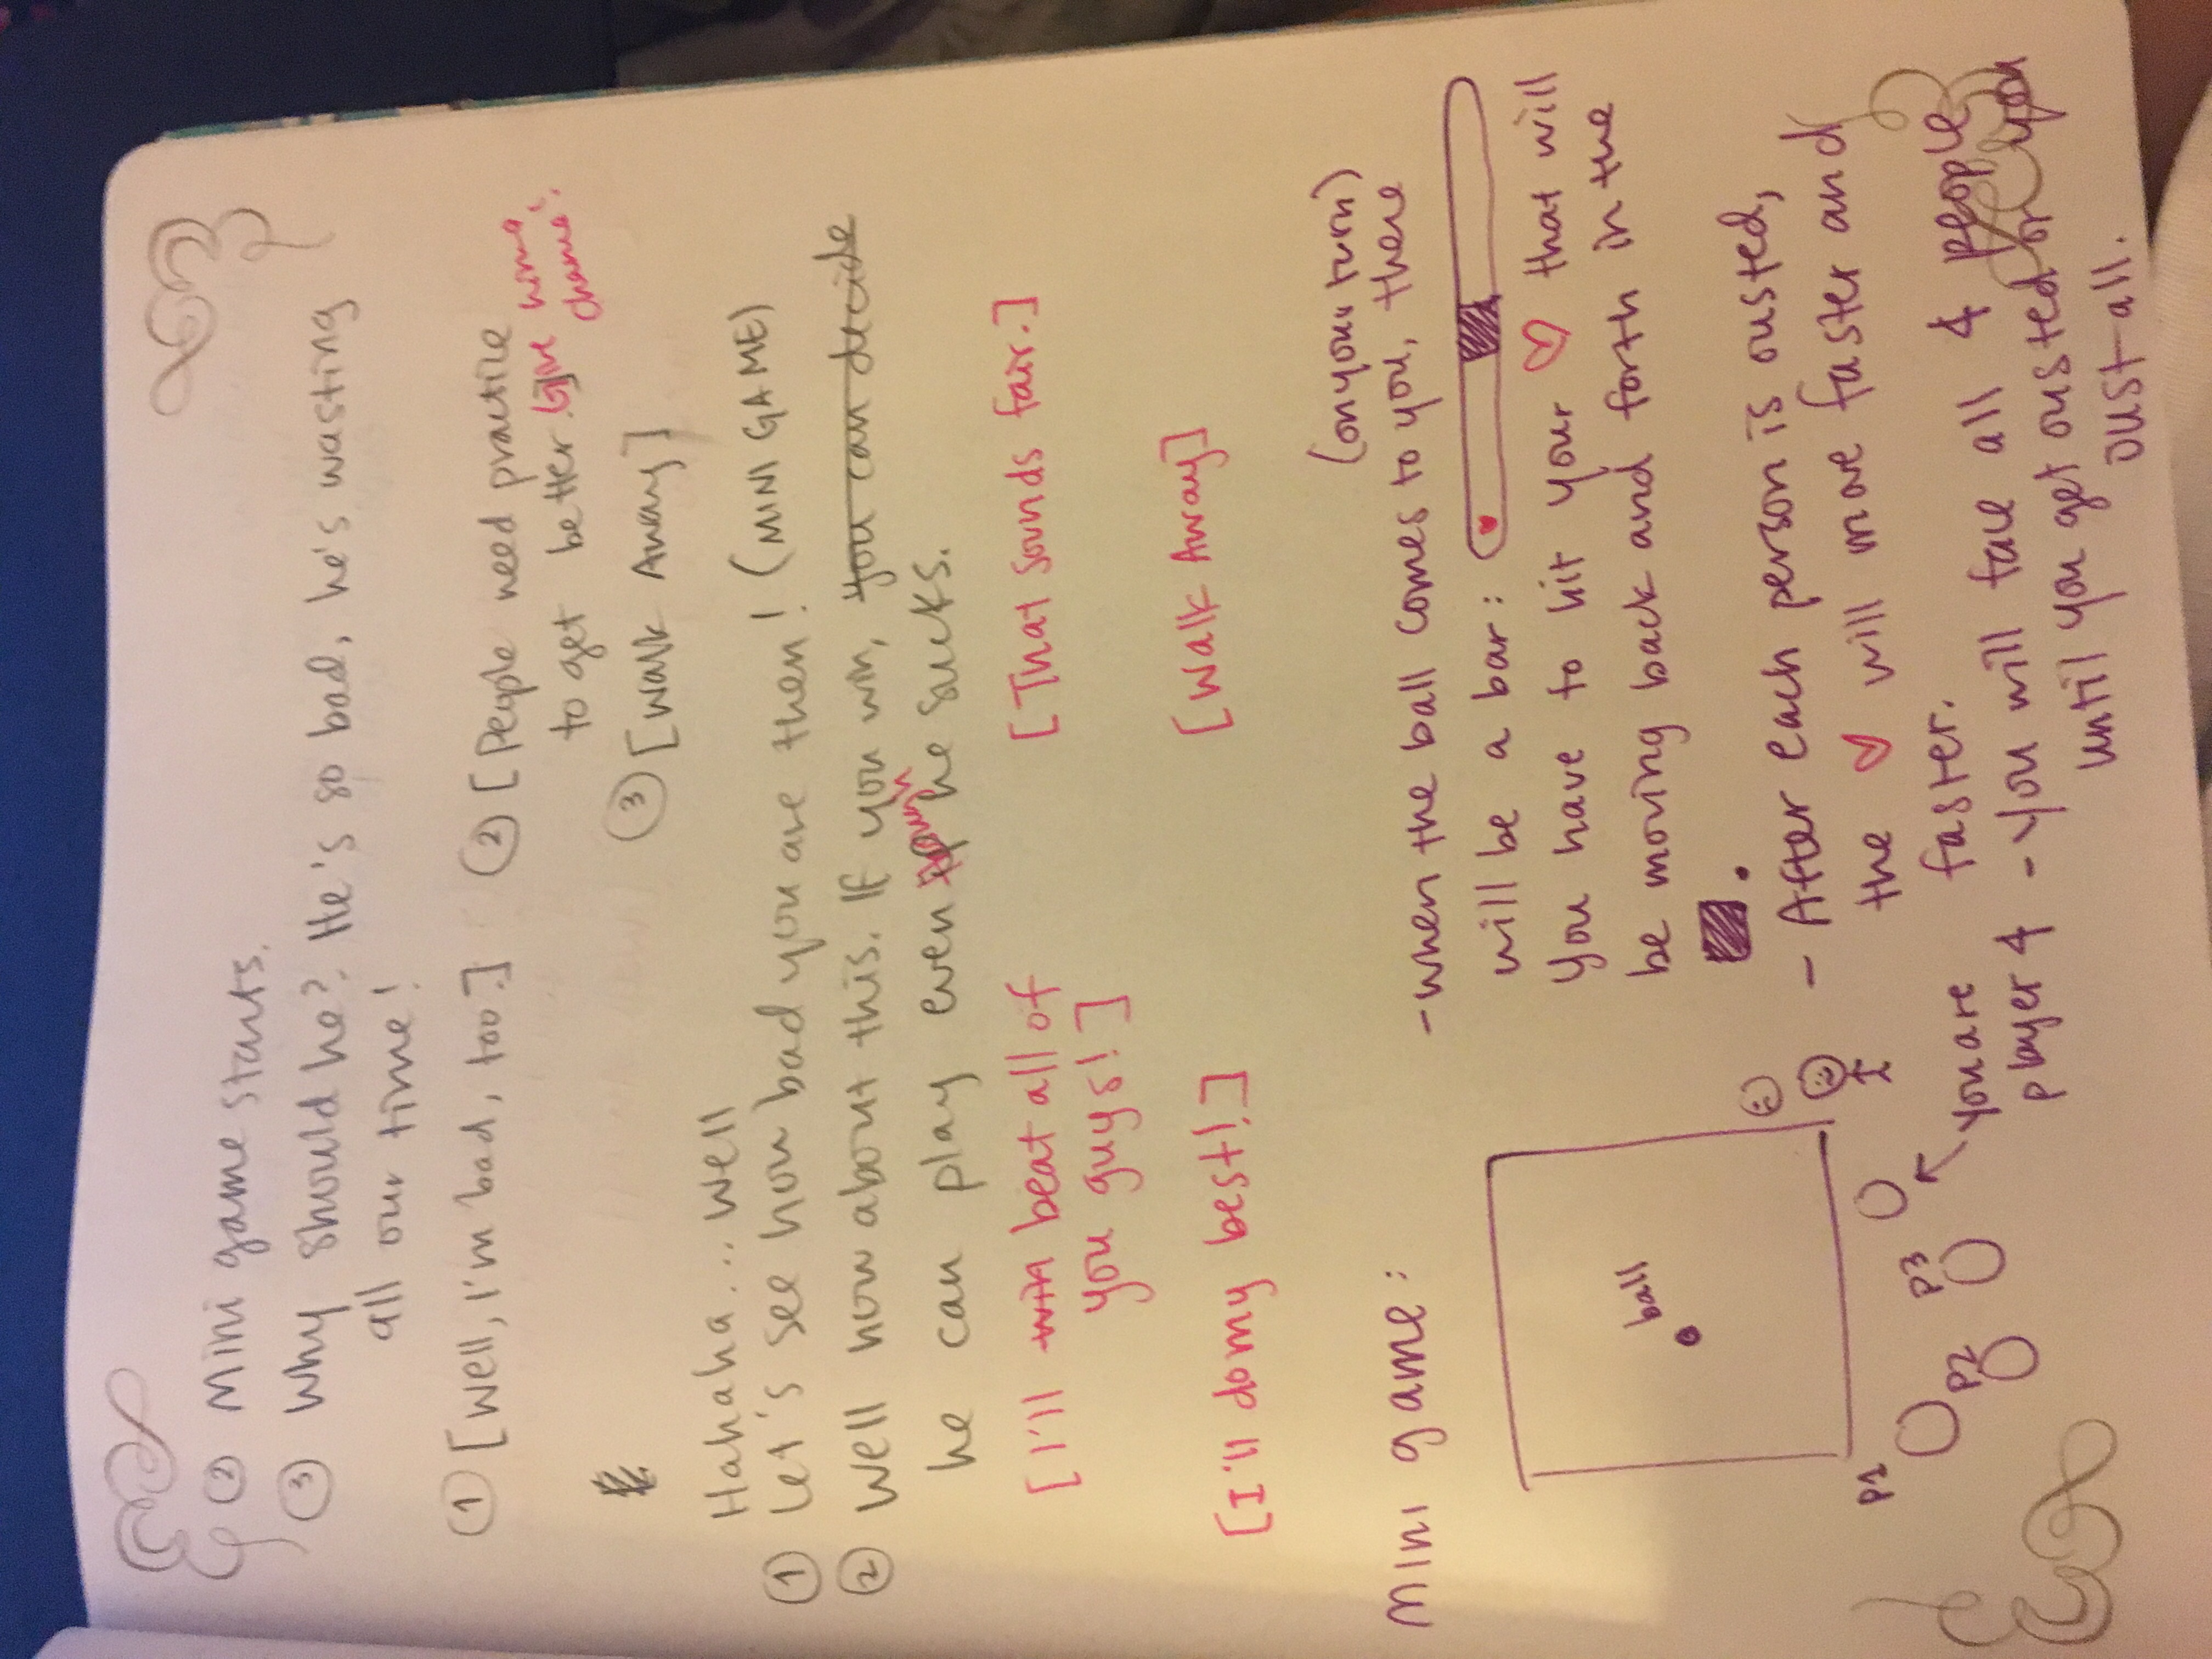 ② Mini game starts.
③ Why should he? He's so bad, he's wasting
all our time!
① [Well, I'm bad, too.]
② [People need practice
to get better.] Give him a
chance!
③ [Walk Away]
Hahaha... Well
① Let's see how bad you are then! (MINI GAME)
② Well how about this. If you win, you can decide
he can play even though he sucks.
[I'll win beat all of
you guys!]
[That sounds fair.]
[I'll do my best!]
[Walk Away]
Mini game:
(on your turn)
- when the ball comes to you, there
will be a bar:
You have to hit your ♡ that will
be moving back and forth in the
.
ball
- After each person is ousted,
the ♡ will move faster and
faster.
P1
P2
P3
You are
player 4
- You will face all 4 people
until you get ousted or you
oust all.